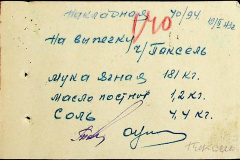 Накладная 40/94
1/40
На выпечку
ч/ Паксель
мука ячная 181 кг.
масло постное 1,2 кг.
Соль 4,4 кг.